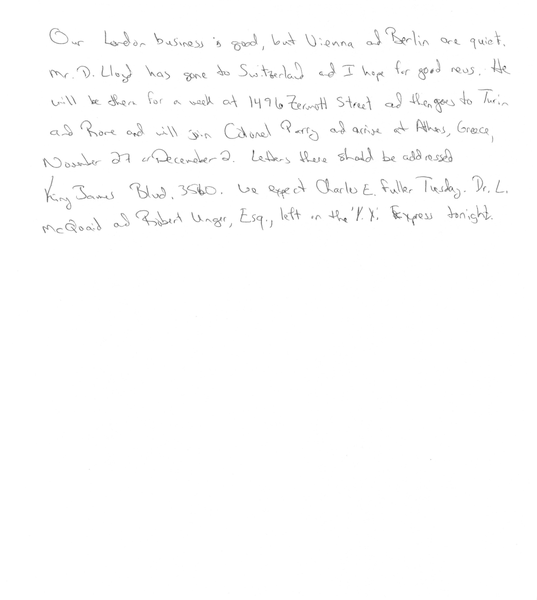 Our London business is good, but Vienna and Berlin are quiet.
Mr. D. Lloyd has gone to Switzerland and I hope for good news. He
will be there for a week at 1496 Zermott Street and then goes to Turin
and Rome and will join Colonel Parry and arrive at Athens, Greece,
November 27 or December 2. Letters there should be addressed
King James Blvd. 3580. We expect Charles E. Fuller Tuesday. Dr. L.
McQuaid and Robert Unger, Esq., left on the 'Y.X.' Express tonight.